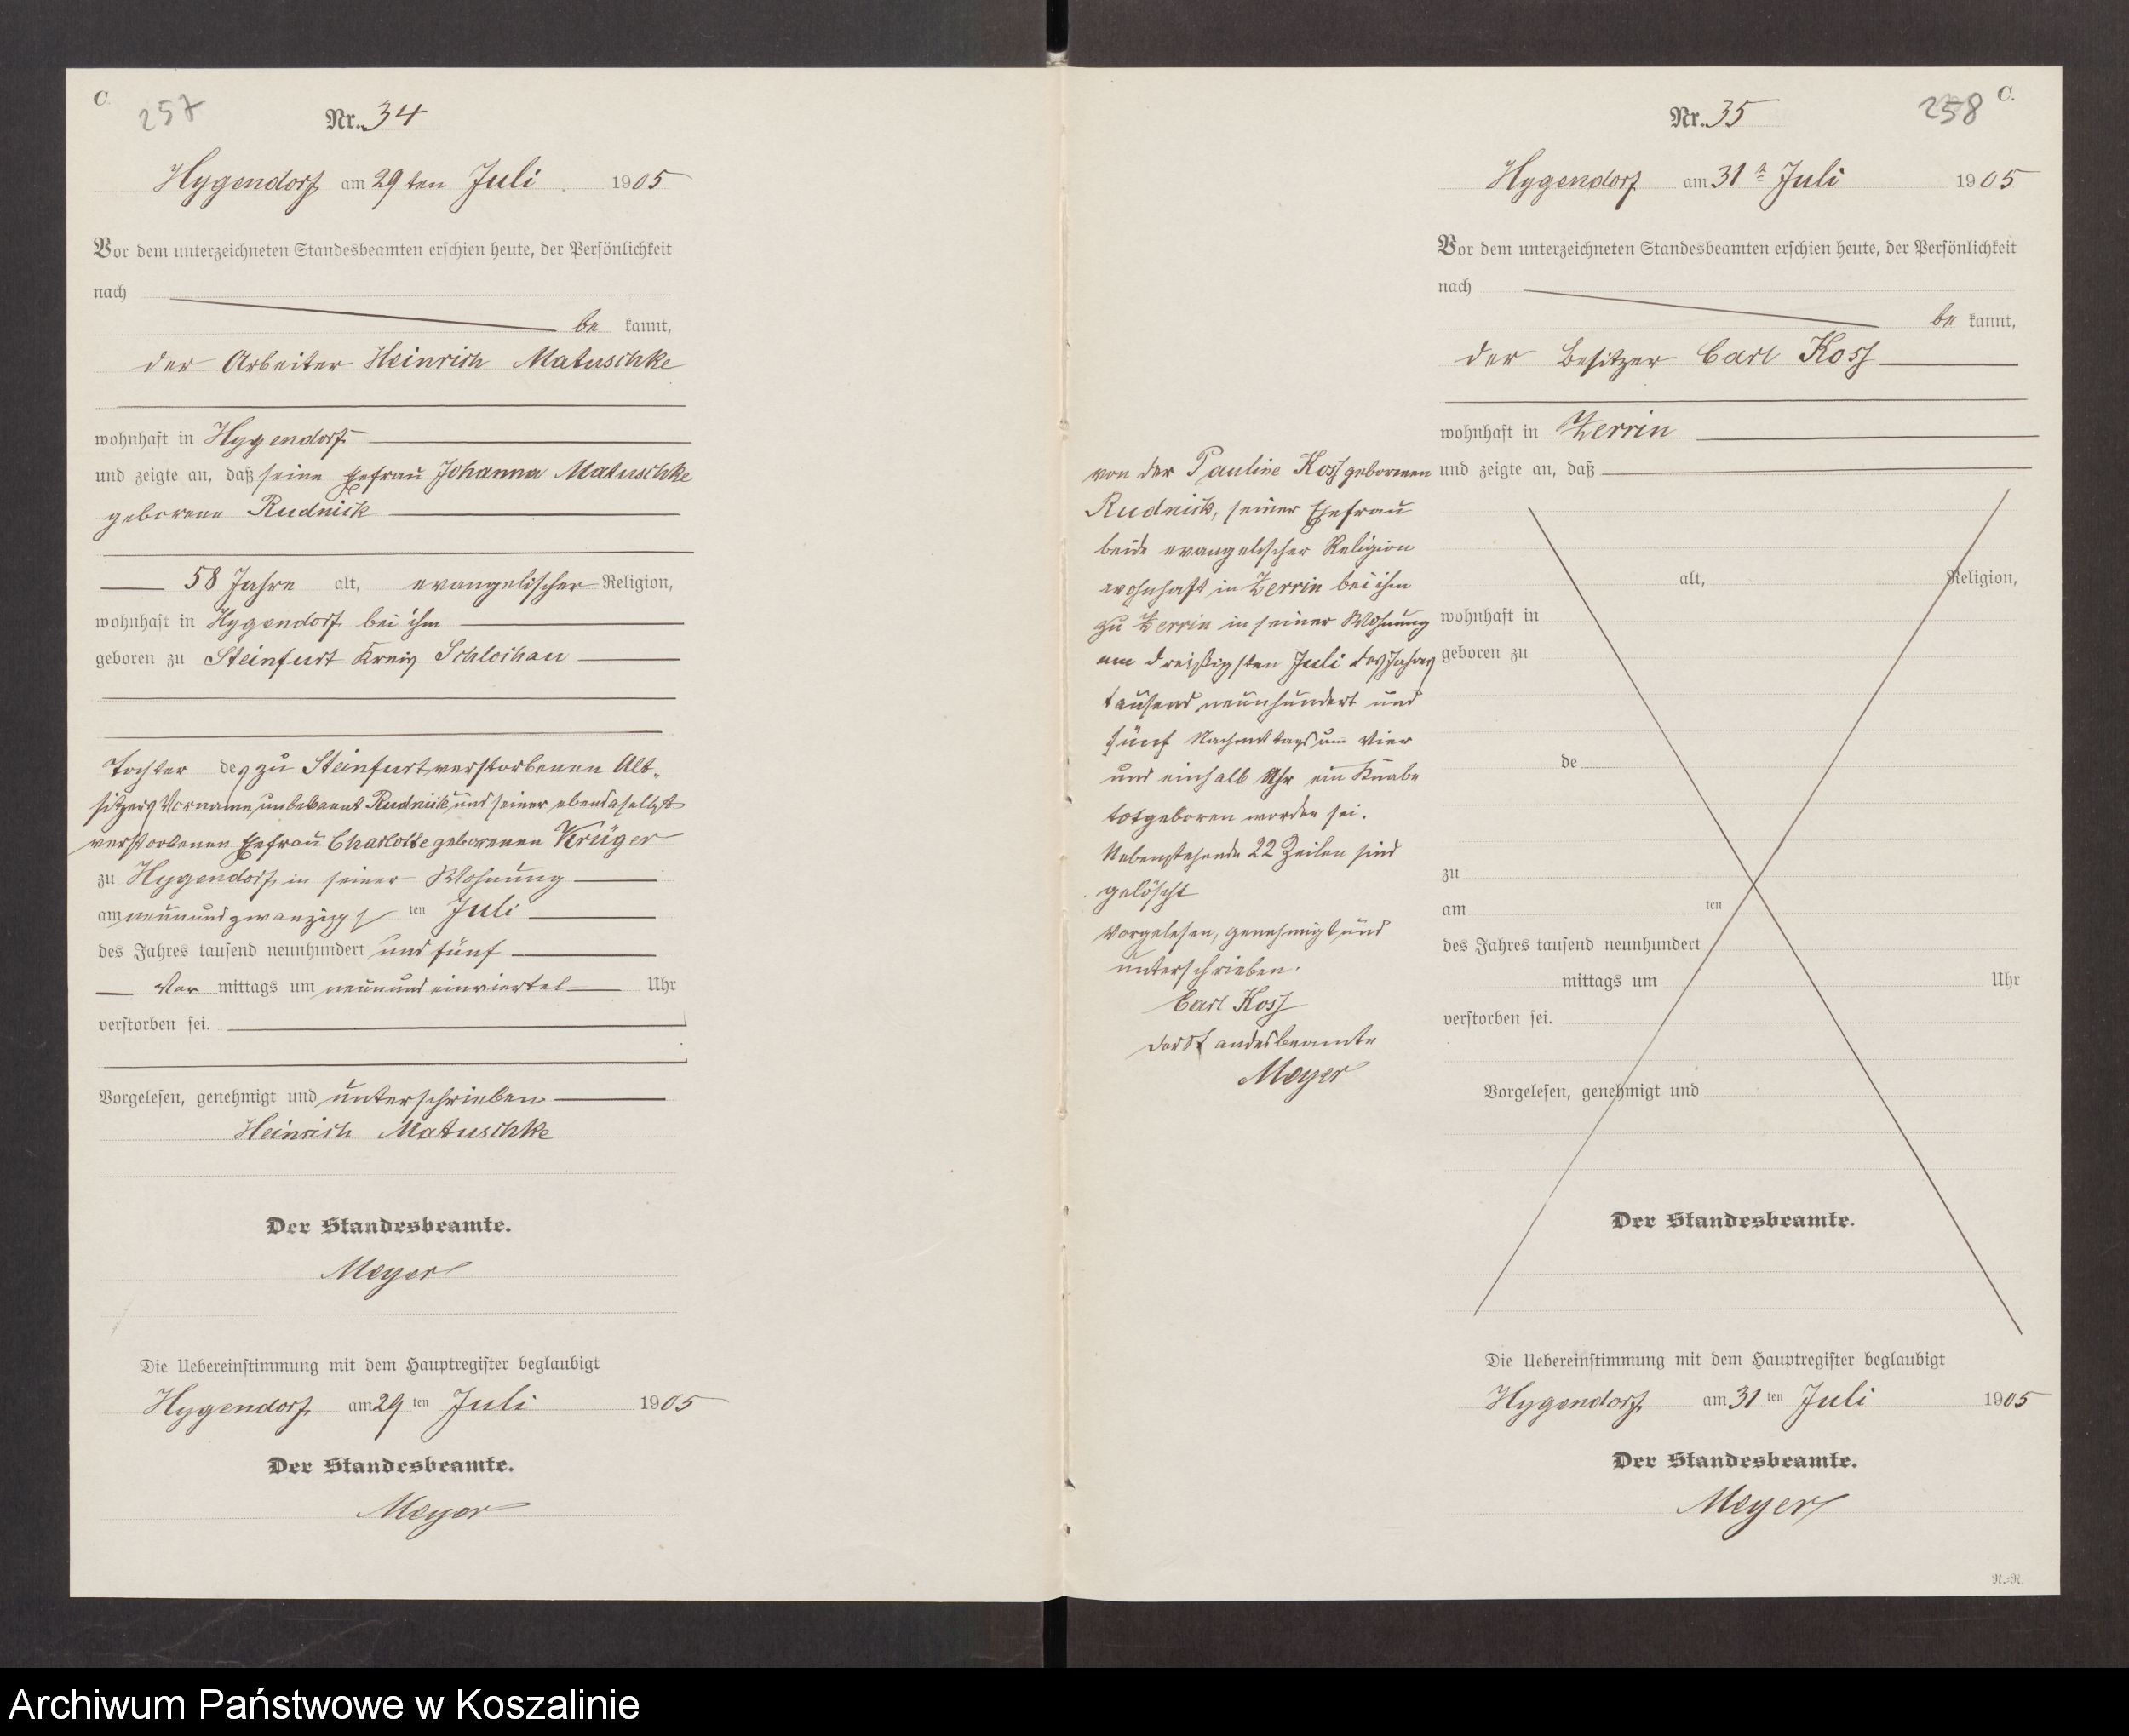 C.
257
Nr. 34
Hygendorf am 29ten Juli 1905
Vor dem unterzeichneten Standesbeamten erschien heute, der Persönlichkeit
nach
be kannt,
der Arbeiter Heinrich Matuschke
wohnhaft in Hygendorf
und zeigte an, daß seine Ehefrau Johanna Matuschke
geborene Rudnick
58 Jahre alt, evangelischer Religion,
wohnhaft in Hygendorf bei ihm
geboren zu Steinfurt Kreis Schlochau
Tochter des zu Steinfurt verstorbenen Alt-
sitzers Vorname unbekannt Rudnick und seiner ebendaselbst
verstorbenen Ehefrau Charlotte geborenen Krüger
zu Hygendorf, in seiner Wohnung
am neunundzwanzigs ten Juli
des Jahres tausend neunhundert und fünf
Vor mittags um neunundeinviertel Uhr
verstorben sei.
Vorgelesen, genehmigt und unterschrieben
Heinrich Matuschke
Der Standesbeamte.
Meyer
Die Uebereinstimmung mit dem Hauptregister beglaubigt
Hygendorf, am 29 ten Juli 1905
Der Standesbeamte.
Meyer
258
C.
Nr. 35
Hygendorf am 31 Juli 1905
Vor dem unterzeichneten Standesbeamten erschien heute, der Persönlichkeit
nach
be kannt,
der Besitzer Carl Koss
wohnhaft in Zerrin
und zeigte an, daß
alt, Religion,
wohnhaft in
geboren zu
de
zu
am ten
des Jahres tausend neunhundert
mittags um Uhr
verstorben sei.
Vorgelesen, genehmigt und
Der Standesbeamte.
von der Pauline Koss geborenen
Rudnick, seiner Ehefrau
beide evangelischer Religion
wohnhaft in Zerrin bei ihm
zu Zerrin in seiner Wohnung
am dreißigsten Juli des Jahres
tausend neunhundert und
fünf Nachmittags um vier
und einhalb Uhr ein Knabe
totgeboren worden sei.
Nebenstehende 22 Zeilen sind
gelöscht
Vorgelesen, genehmigt und
unterschrieben.
Carl Koss
Der Standesbeamte
Meyer
Die Uebereinstimmung mit dem Hauptregister beglaubigt
Hygendorf, am 31 ten Juli 1905
Der Standesbeamte.
Meyer
Archiwum Państwowe w Koszalinie